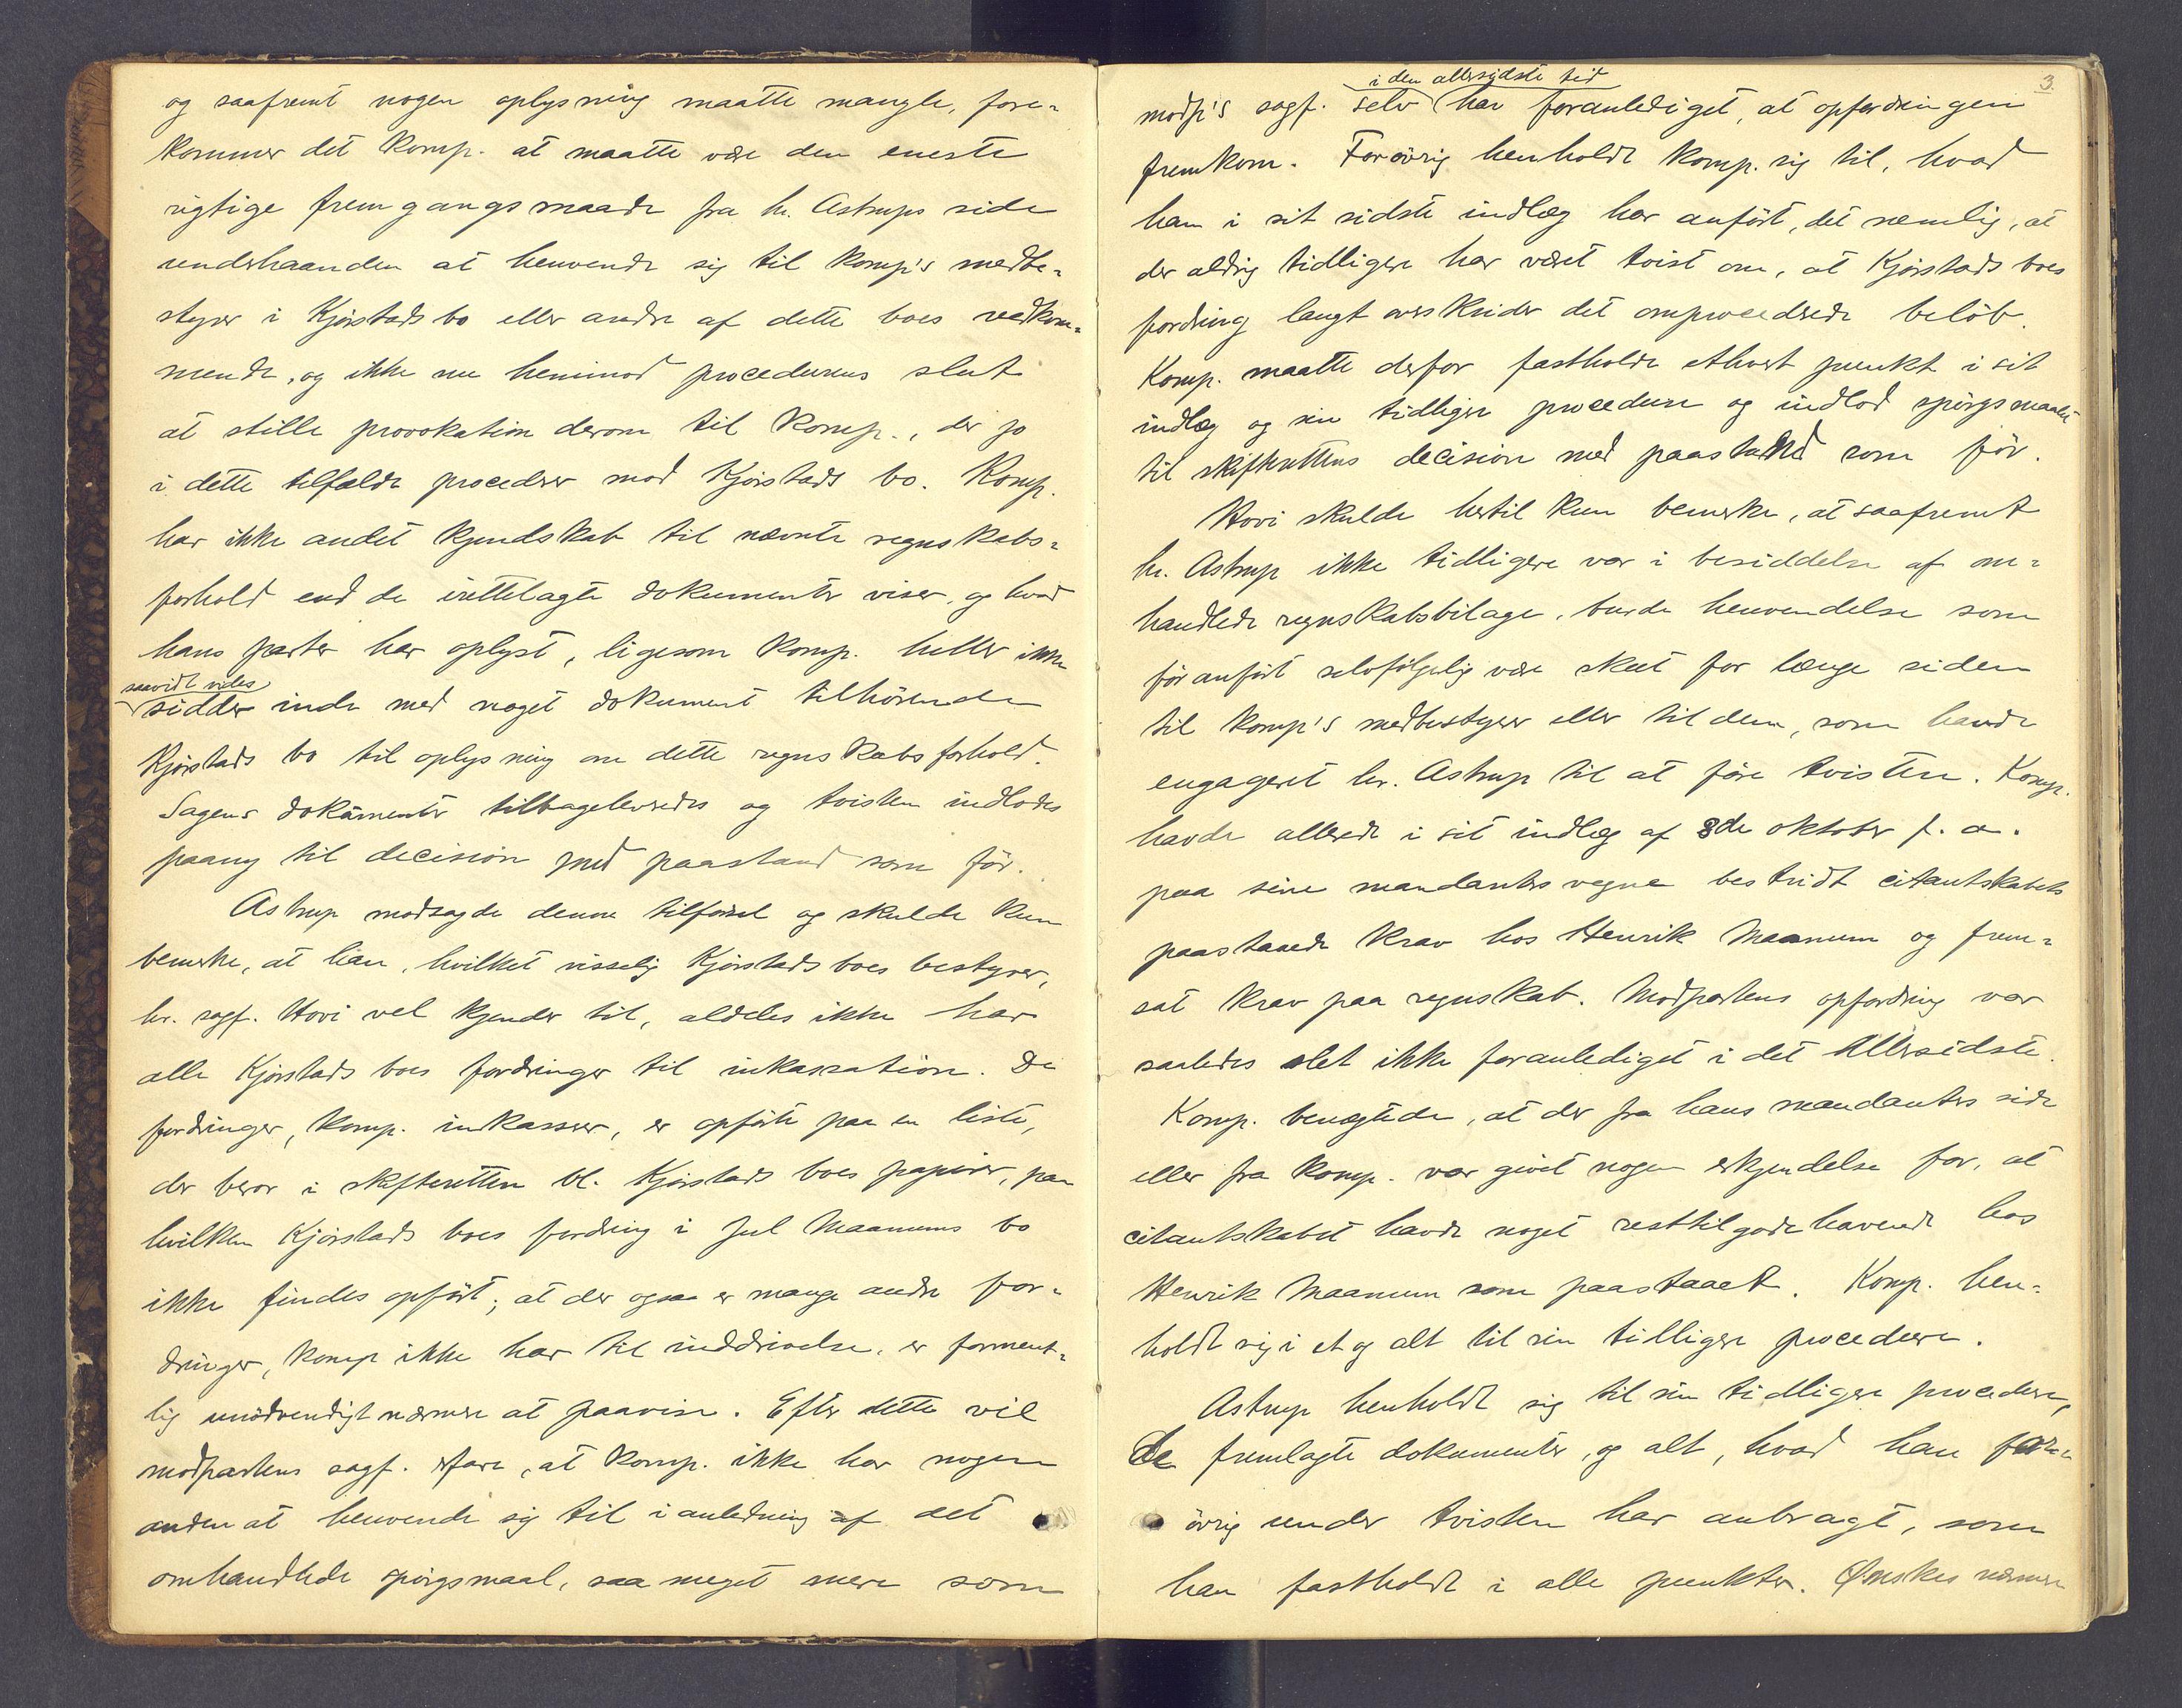 og saafremt nogen oplysning maatte mangle, fore-
kommer det Komp. at maatte være den eneste
rigtige fremgangsmaade fra hr. Astrups side
underhaanden at henvende sig til Komp's medbe-
styrer i Kjørstads bo eller andre af dette boes vedkom-
mende, og ikke nu henimod procedurens slut
at stille provokation derom til Komp., der jo
i dette tilfælde procederer mod Kjørstads bo. Komp.
har ikke andet kjendskab til nævnte regnskabs-
forhold end de irettelagte dokumenter viser, og hvad
hans parter har oplyst, ligesom Komp. heller ikke
saavidt vides
sidder inde med noget dokument tilhørende
Kjørstads bo til oplysning om dette regnskabsforhold.
Sagens dokumenter tilbageleveredes og tvisten indlodes
paany til decision med paastand som før.
Astrup modsagde denne tilførsel og skulde kun
bemerke, at han, hvilket visselig Kjørstads boes bestyrer,
hr. sagf. Hovi vel kjender til, aldeles ikke har
alle Kjørstads boes fordringer til inkassation. De
fordringer, Komp. inkasserer, er opførte paa en liste,
der beror i skifteretten bl. Kjørstads boes papirer, paa
hvilken Kjørstads boes fordring i Jul Maanums bo
ikke findes opført; at der ogsaa er mange andre for-
dringer, Komp ikke har til inddrivelse, er forment-
lig unødvendigt nærmere at paavise. Efter dette vil
modpartens sagf. erfare, at Komp. ikke har nogen
anden at henvende sig til i anledning af det
omhandlede spørgsmaal, saa meget mere som
3.
i den allersidste tid
modp's sagf. selv har foranlediget, at opfordringen
fremkom. Forøvrig henholdt Komp. sig til, hvad
han i sit sidste indlæg har anført, det nemlig, at
der aldrig tidligere har været tvist om, at Kjørstads boes
fordring langt overskrider det omprocederede beløb.
Komp. maatte derfor fastholde ethvert punkt i sit
indlæg og sin tidligere procedure og indlod spørgsmaalet
til skifterettens decision med paastand som før.
Hovi skulde hertil kun bemerke, at saafremt
hr. Astrup ikke tidligere var i besiddelse af om-
handlede regnskabsbilage, burde henvendelse som
før anført selvfølgelig være skeet for længe siden
til Komp's medbestyrer eller til dem, som havde
engageret hr. Astrup til at føre tvisten. Komp.
havde allerede i sit indlæg af 8de oktober f. a.
paa sine mandanters vegne bestridt citantskabets
paastaaede krav hos Henrik Maanum og frem-
sat krav paa regnskab. Modpartens opfordring var
saaledes slet ikke foranlediget i det allersidste.
Komp. benegtede, at der fra hans mandanters side
eller fra Komp. var givet nogen erkjendelse for, at
citantskabet havde noget resttilgodehavende hos
Henrik Maanum som paastaaet. Komp. hen-
holdt sig i et og alt til sin tidligere procedure.
Astrup henholdt sig til sin tidligere procedure,
de fremlagte dokumenter, og alt, hvad han for-
øvrig under tvisten har anbragt, som
han fastholdt i alle punkter. Ønskes nærmere